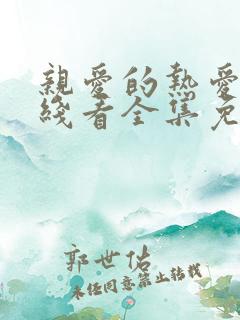 親愛的熱愛
綫看全集免
郭世佑
未經同意禁止轉載